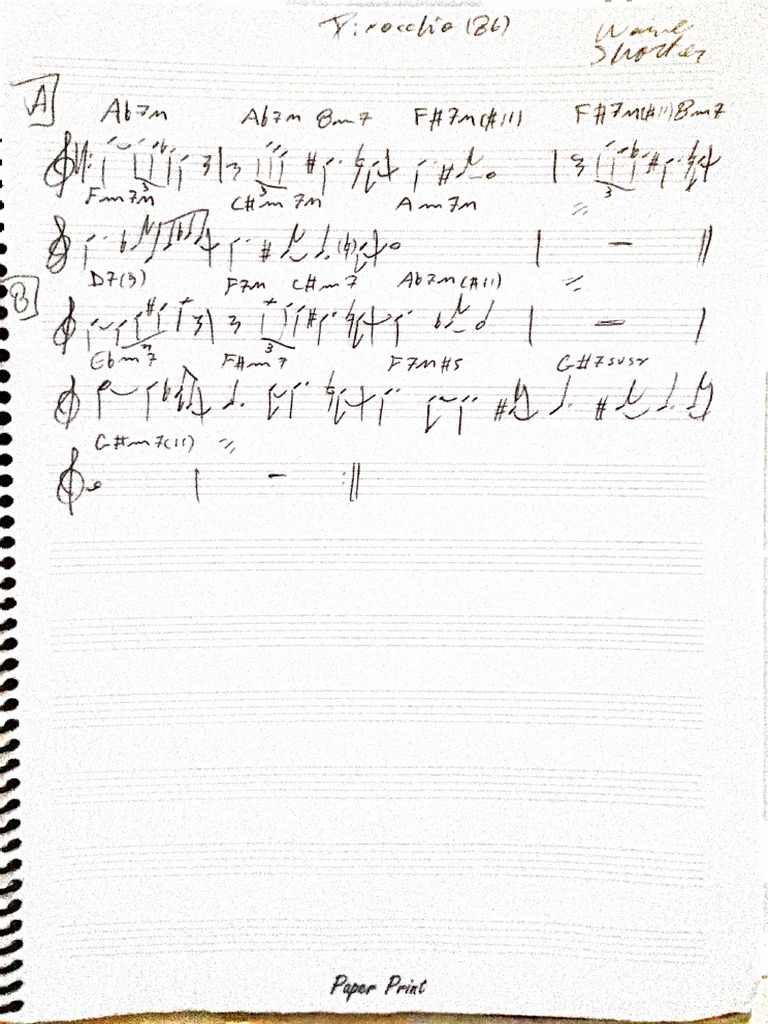 Pinocchio (Bb)
Wayne
Shorter
A
Ab7M Ab7M Bm7 F#7M(#11) F#7M(#11) Bm7
3 3 3
Fm7M C#m7M Am7M
B
D7(9) F7M C#m7 Ab7M(#11)
3 3
Ebm7 F#m7 F7M#5 G#7sus4
G#m7(11)
Paper Print